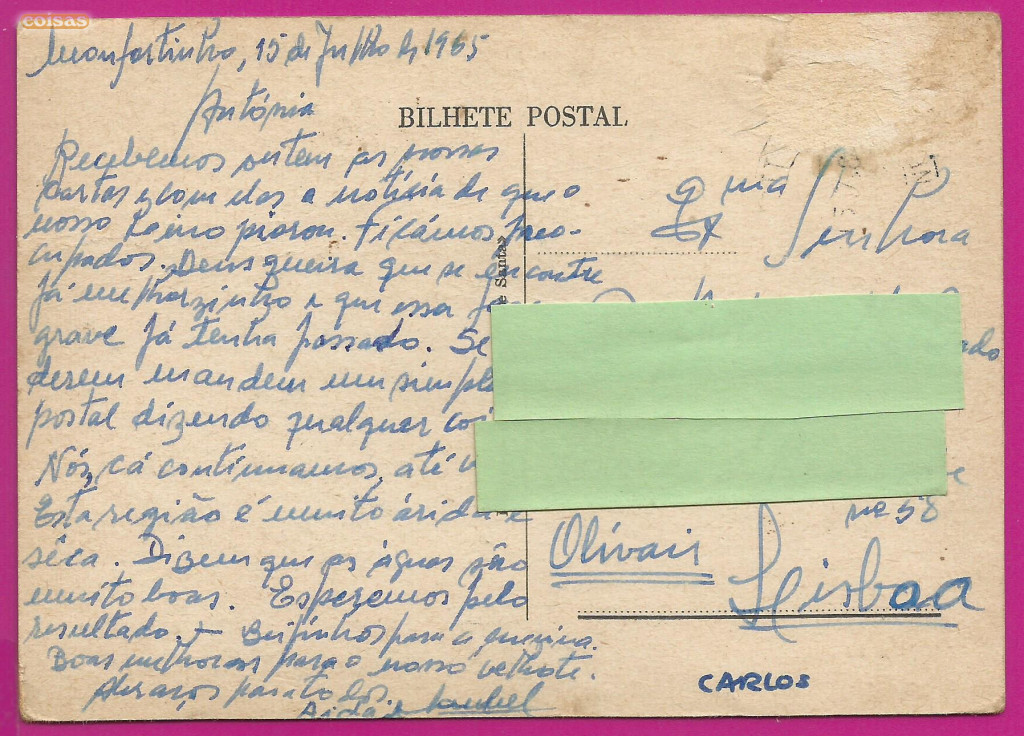 coisas
Monfortinho, 15 de Julho de 1965
Antónia
BILHETE POSTAL
Recebemos ontem as vossas
cartas e com elas a notícia de que o
nosso piorou. Ficámos preo-
cupados. Deus queira que se encontre
já melhorzinho e que essa
grave já tenha passado. Se
derem mandem um simpl
postal dizendo qualquer coi
Nós, cá continuamos, até
Esta região é muito árida e
sêca. Dizem que as águas são
muito boas. Esperemos pelo
resultado. Beijinhos para a menina.
Boas melhoras para o nosso velhote.
Abraços para todos.
Aida e Manuel
e Santas
Exma
Senhora
ado
nº 58
Olivais
Lisboa
CARLOS